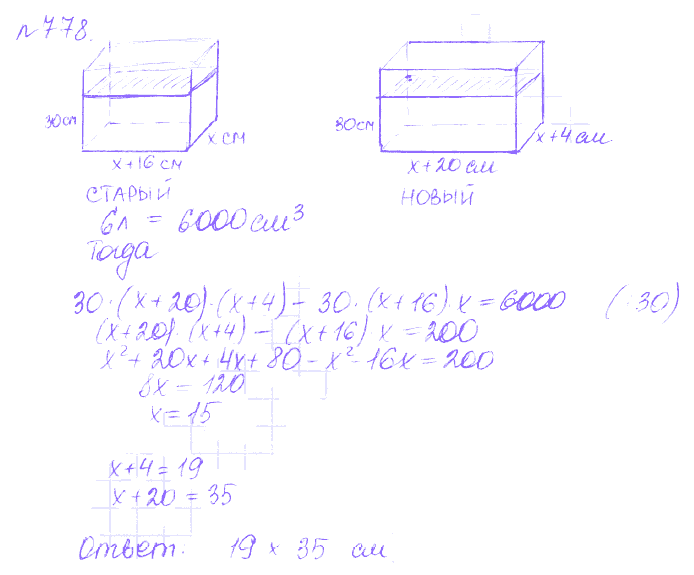 №778.
30см
x см
x+16 см
СТАРЫЙ
30см
x+4 см
x+20 см
НОВЫЙ
6л = 6000 см³
Тогда
30·(x+20)·(x+4) - 30·(x+16)·x = 6000 (:30)
(x+20)·(x+4) - (x+16)·x = 200
x² + 20x + 4x + 80 - x² - 16x = 200
8x = 120
x = 15
x+4 = 19
x+20 = 35
Ответ: 19 × 35 см